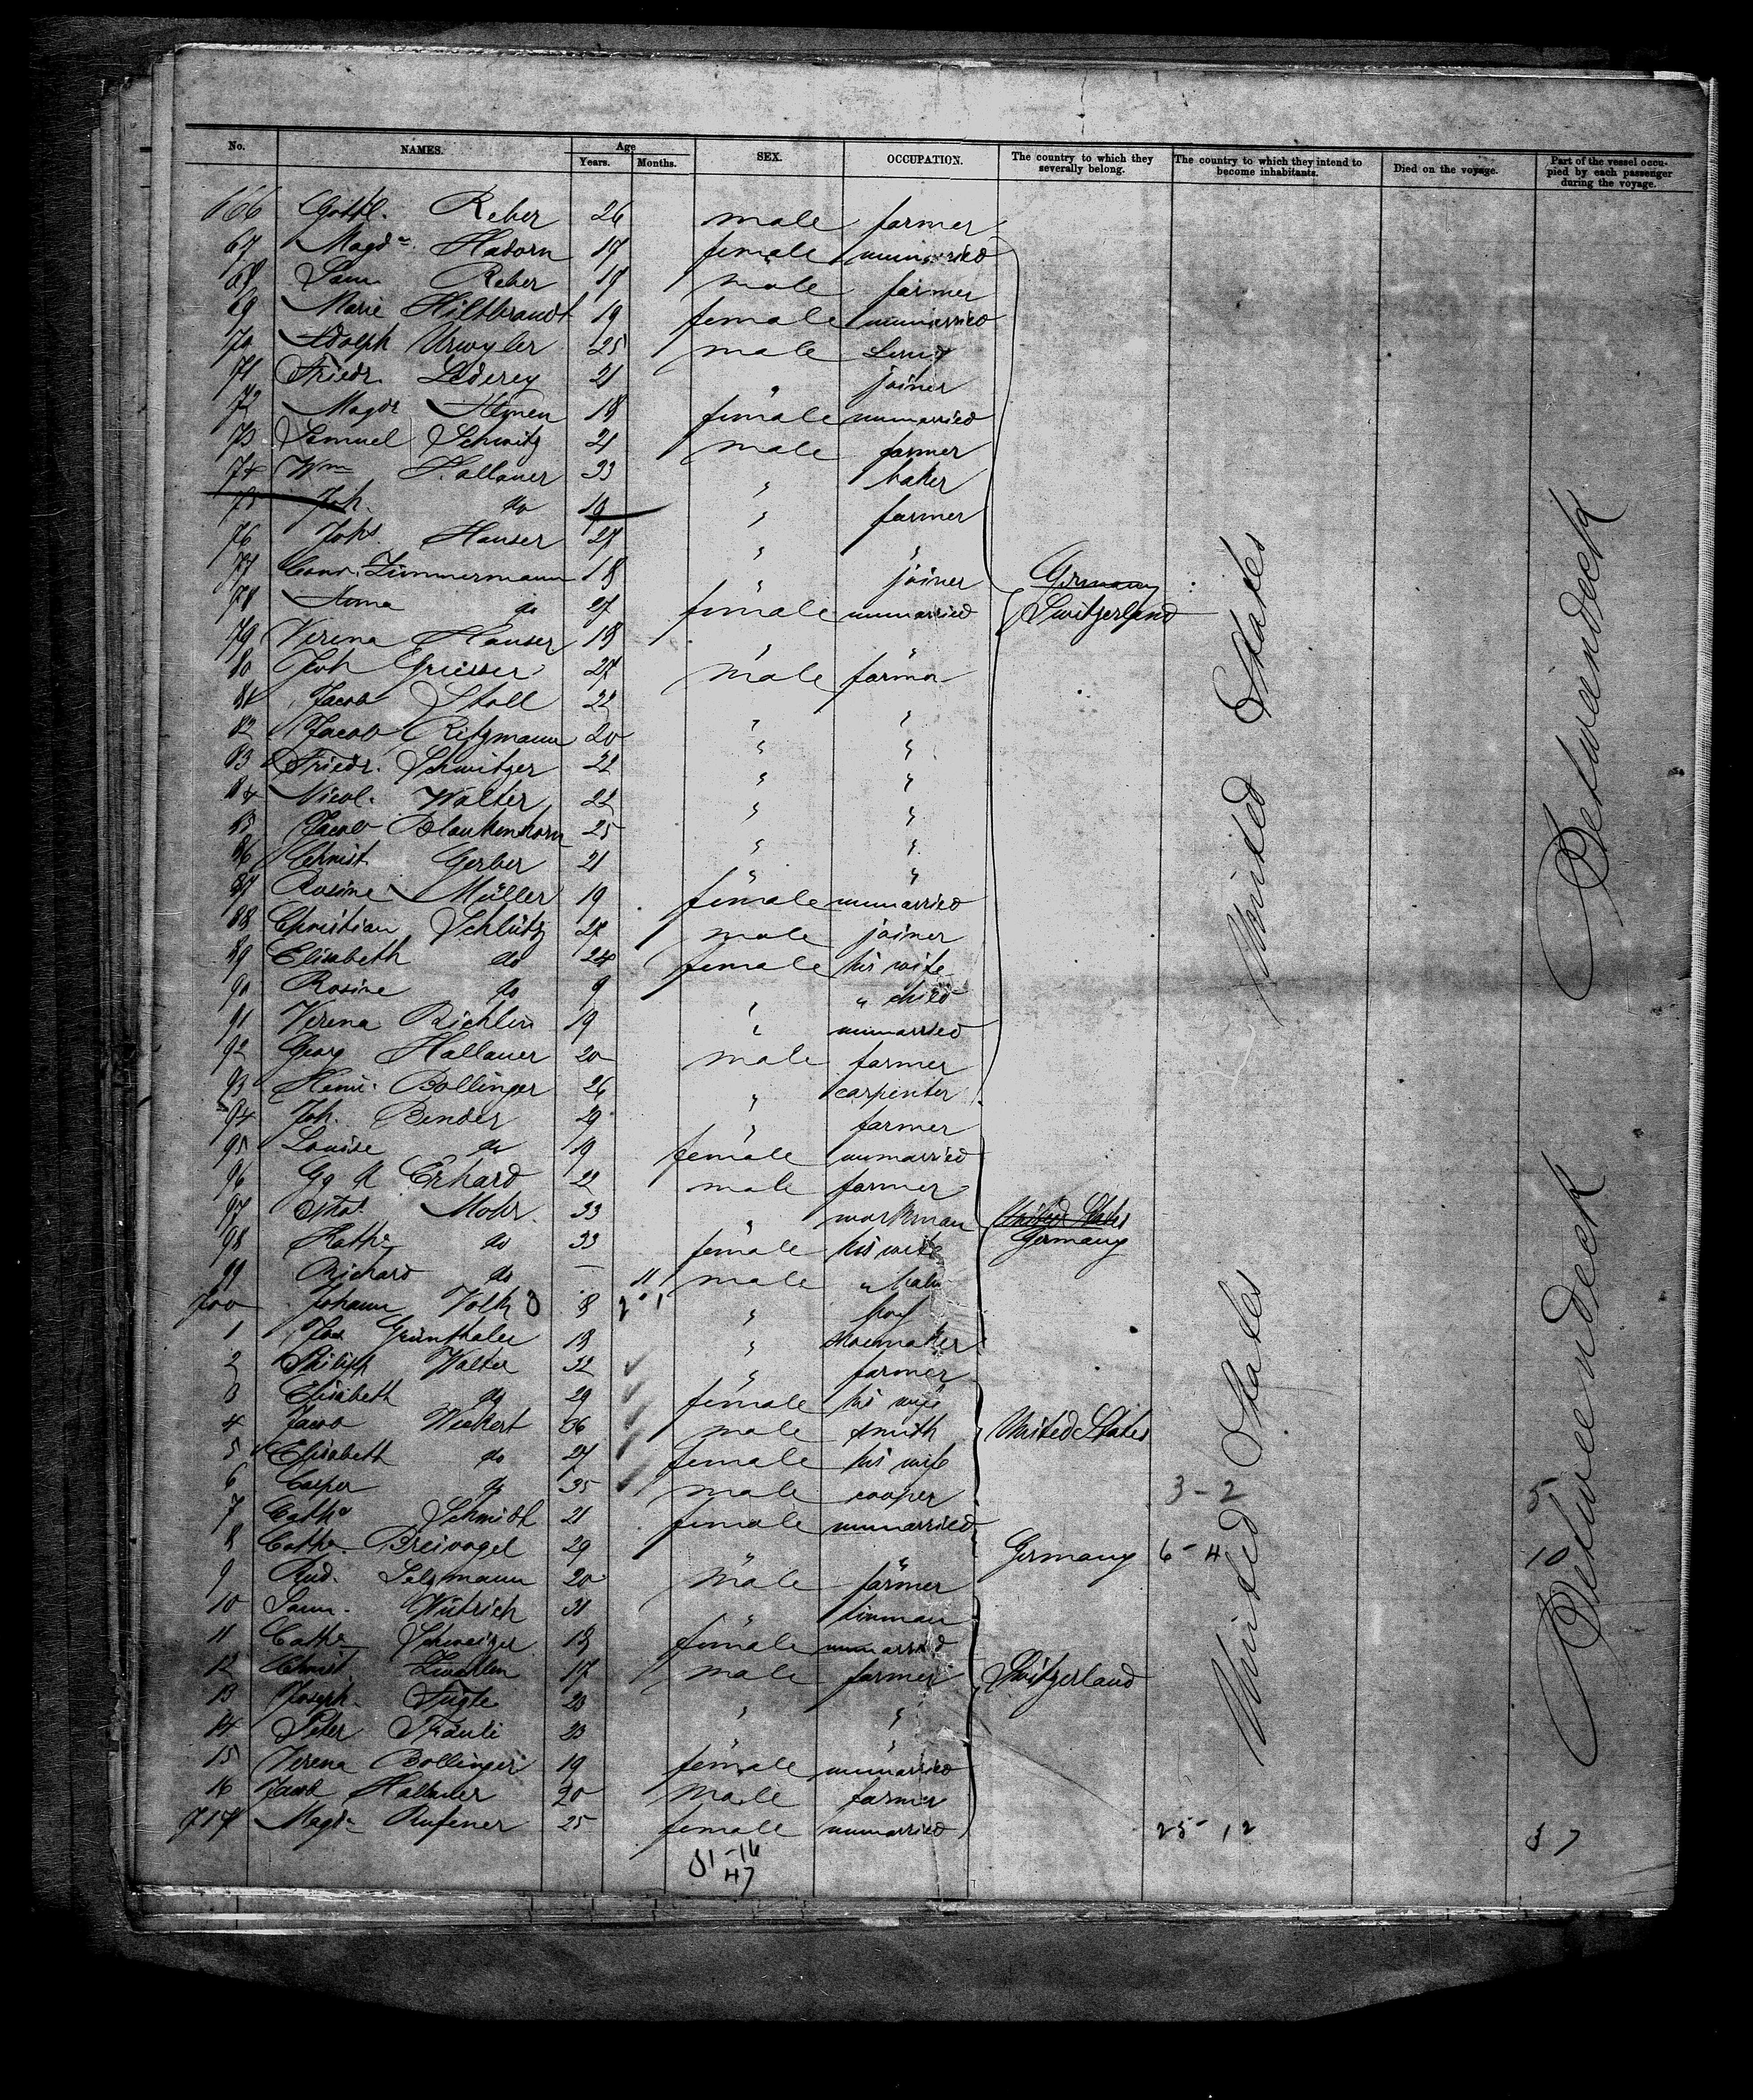 No. NAMES. Age Years. Months. SEX. OCCUPATION. The country to which they severally belong. The country to which they intend to become inhabitants. Died on the voyage. Part of the vessel occupied by each passenger during the voyage.
666 Gottl. Reber 26 male farmer
67 Magda Hadorn 19 female unmarried
68 Sam Reber 19 male farmer
69 Marie Hiltbrandt 19 female unmarried
70 Adolph Urwyler 25 male
71 Friedr. Lederey 21 " joiner
72 Magda 18 female unmarried
73 Samuel Schmitz 21 male farmer
74 Wm Hallauer 33 " baker
75 Joh. do 19 " farmer
76 Johs. Hauser 27 " "
77 Conr. Zimmermann 18 " joiner Germany
78 Anna do 27 female unmarried Switzerland
79 Verena Hauser 18 " "
80 Joh Griesser 27 male farmer
81 Jacob Stoll 22 " "
82 Jacob Ritzmann 20 " "
83 Friedr. Schmitzer 22 " "
84 Nicol. Walter 22 " "
85 Jacob Blankenhorn 25 " "
86 Christ Gerber 21 " "
87 Rosine Müller 19 female unmarried
88 Christian Schlütz 28 male joiner
89 Elisabeth do 24 female his wife
90 Rosine do 9 " " child
91 Verena Richlin 19 " unmarried
92 Georg Hallauer 20 male farmer
93 Heinr. Bollinger 26 " carpenter
94 Joh. Bender 29 " farmer
95 Louise do 19 female unmarried
96 Gg A Erhard 22 male farmer
97 Mohr 33 " workman United States
98 Kathe do 33 female his wife Germany
99 Richard do — 11 male " baby
700 Johann Volk 8 " boy
1 Jos Grünthaler 18 " shoemaker
2 Philipp Walter 32 " farmer
3 Elisabeth do 29 female his wife
4 Jacob Weckert 36 male smith United States
5 Elisabeth do 27 female his wife
6 Casper do 35 male cooper 3-2 5
7 Catha Schmidt 21 female unmarried
8 Catha. Breivogel 29 " " Germany 6-4 10
9 Rud. Selzmann 20 male farmer
10 Sam. Wütrich 31 " tinman
11 Catha Schweizer 18 female unmarried
12 Christ. Zwahlen 17 male farmer Switzerland
13 Joseph 23 " "
14 Peter 23 " "
15 Verena Bollinger 19 female unmarried
16 Jacob Hallauer 20 male farmer
717 Magda Rufener 25 female unmarried 25-12 37
31-16
47
United States
Betweendeck
United States
Betweendeck